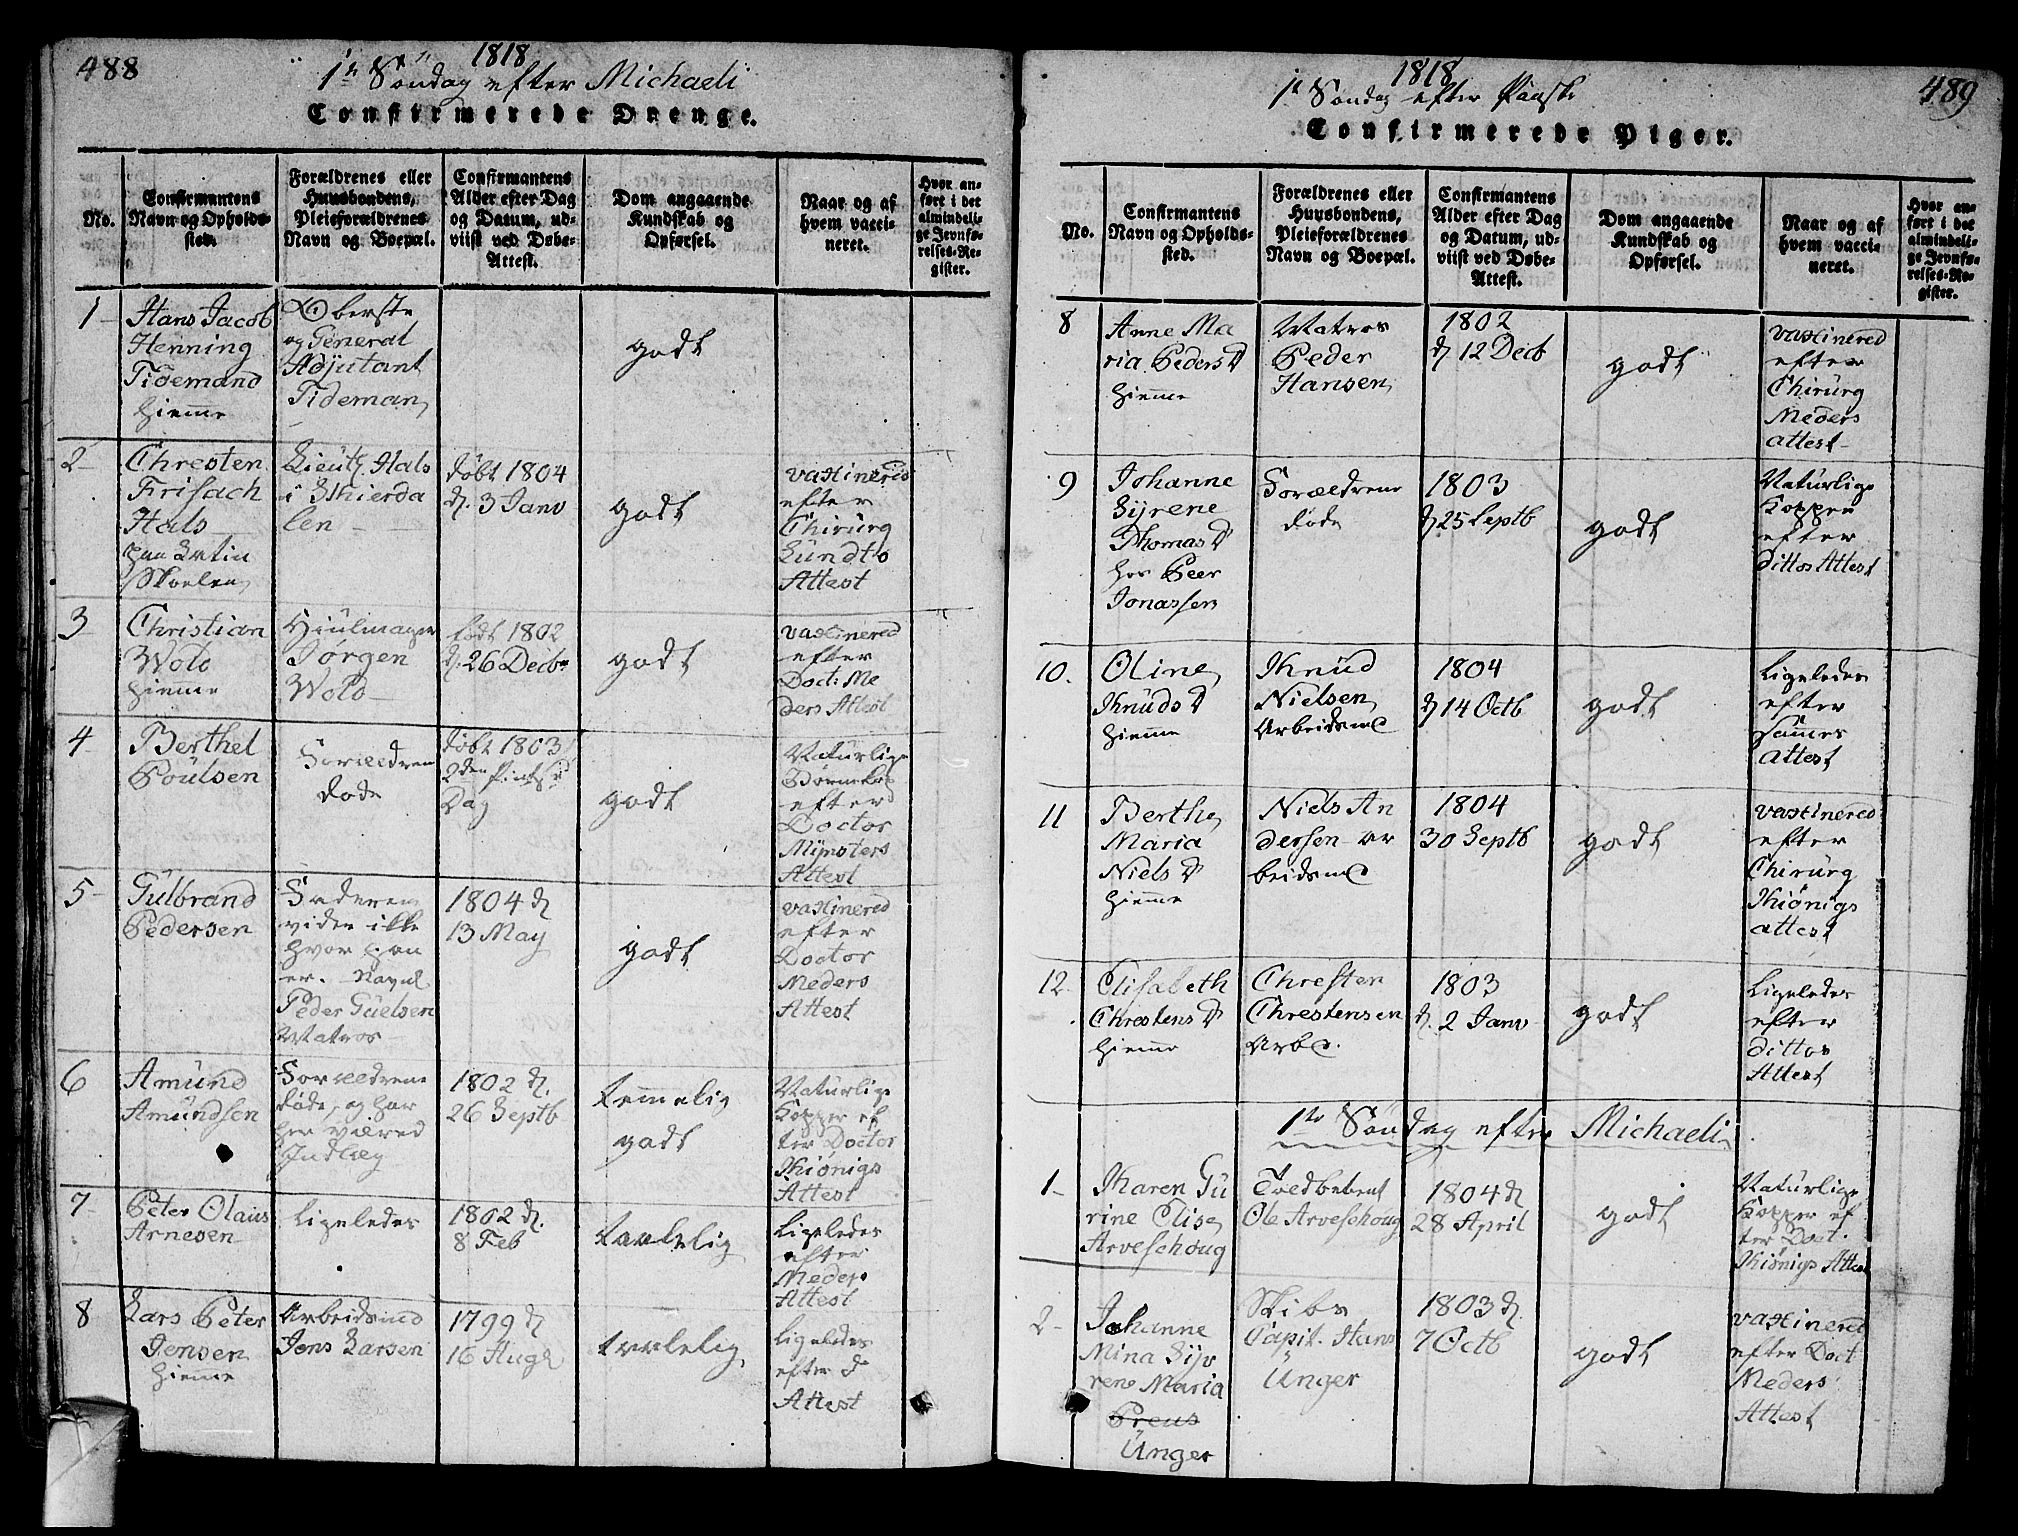 488
1818
1ste Søndag efter Michaeli
Confirmerede Drenge.
No.
Confirmantens
Navn og Opholds-
sted.
Forældrenes eller
Huusbondens,
Pleieforældrenes
Navn og Boepæl.
Confirmantens
Alder efter Dag
og Datum, ud-
viist ved Døbe-
Attest.
Dom angaaende
Kundskab og
Opførsel.
Naar og af
hvem vacci-
neret.
Hvor an-
ført i det
almindeli-
ge Jevnfø-
relses-Re-
gister.
1
Hans Jacob
Henning
Tidemand
hiemme
Oberste
og General
Adjutant
Tideman
godt
2
Chresten
Frisach
Hals
paa Latin
Skolen
Lieut. Hals
i Skierda
len
døbt 1804
d. 3 Janv
godt
vaxinered
efter
Chirurg
Lundts
Attest
3
Christian
Wold
hiemme
Hiulmager
Jørgen
Wold
født 1802
d. 26 Decbr
godt
vaxinered
efter
Doct: Me
ders Attest
4
Berthel
Poulsen
Forældren
døde
døbt 1803
2den Pintse
Dag
godt
Naturlige
Børnekop
efter
Doctor
Mynsters
Attest
5
Gulbrand
Pedersen
Faderen
viden ikke
hvor han
er. Navnl
Peder Guelsen
Matros
1804 d
13 May
godt
vaxinered
efter
Doctor
Meders
Attest
6
Amund
Amundsen
Forældrene
døde, og har
her været
Indlæg
1802 d.
26 Septb
temmelig
godt
Naturlige
Kopper ef
ter Doctor
Kiønigs
Attest
7
Peter Olaus
Arnesen
Ligeledes
1802 d.
8 Feb
taalelig
Ligeledes
efter
Meders
Attest
8
Lars Peter
Jensen
hiemme
Arbeidsmd
Jens Larsen
1799 d
16 Aug
taalelig
ligeledes
efter d
Attest
489
1818
1ste Søndag efter Paaske
Confirmerede Piger.
No.
Confirmantens
Navn og Opholds-
sted.
Forældrenes eller
Huusbondens,
Pleieforældrenes
Navn og Boepæl.
Confirmantens
Alder efter Dag
og Datum, ud-
viist ved Døbe-
Attest.
Dom angaaende
Kundskab og
Opførsel.
Naar og af
hvem vacci-
neret.
Hvor an-
ført i det
almindeli-
ge Jevnfø-
relses-Re-
gister.
8
Anne Ma
ria Peders D
hiemme
Matros
Peder
Hansen
1802
d 12 Decb
godt
vaxinered
efter
Chirurg
Meders
attest
9
Johanne
Syrene
Thomas D
hos Peer
Jonassen
Forældrene
døde
1803
d 25 Septb
godt
Naturlige
Kopper
efter
dittos Attest
10.
Oline
Knuds D
hiemme
Knud
Nielsen
Arbeidsmd
1804
d 14 Octb
godt
Ligeledes
efter
sammes
attest
11
Berthe
Maria
Niels D
hiemme
Niels An
dersen ar
beidsmd
1804
30 Septb
godt
vaxinered
efter
Chirurg
Kiønigs
attest
12
Elisabeth
Chrestens D
hiemme
Chresten
Chrestensen
Arbd.
1803
d. 2 Janv
godt
Ligeledes
efter
dittos
Attest
1ste Søndag efter Michaeli
1
Karen Gu
rine Elise
Arveschoug
Toldbetient
Ole Arveschoug
1804 d
28 April
godt
Naturlige
Kopper ef
ter Doct.
Kiønigs Attest
2
Johanne
Mina Syv
rene Maria
Preus
Unger
Skibs
Capit. Hans
Unger
1803 d
7 Octb
godt
vaxinered
efter Doct
Meders
Attest